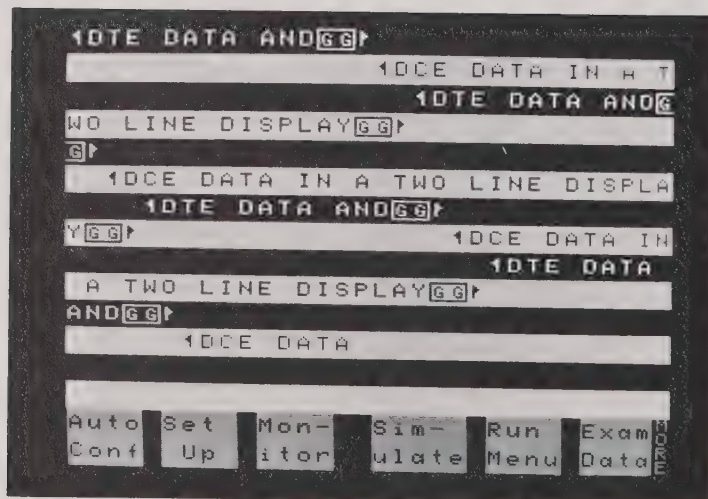 1DTE DATA ANDGG
1DCE DATA IN A T
1DTE DATA ANDG
WO LINE DISPLAYGG
G
1DCE DATA IN A TWO LINE DISPLA
1DTE DATA ANDGG
YGG 1DCE DATA IN
1DTE DATA
A TWO LINE DISPLAYGG
ANDGG
1DCE DATA
Auto Set Mon- Sim- Run Exam
Conf Up itor ulate Menu Data
MORE